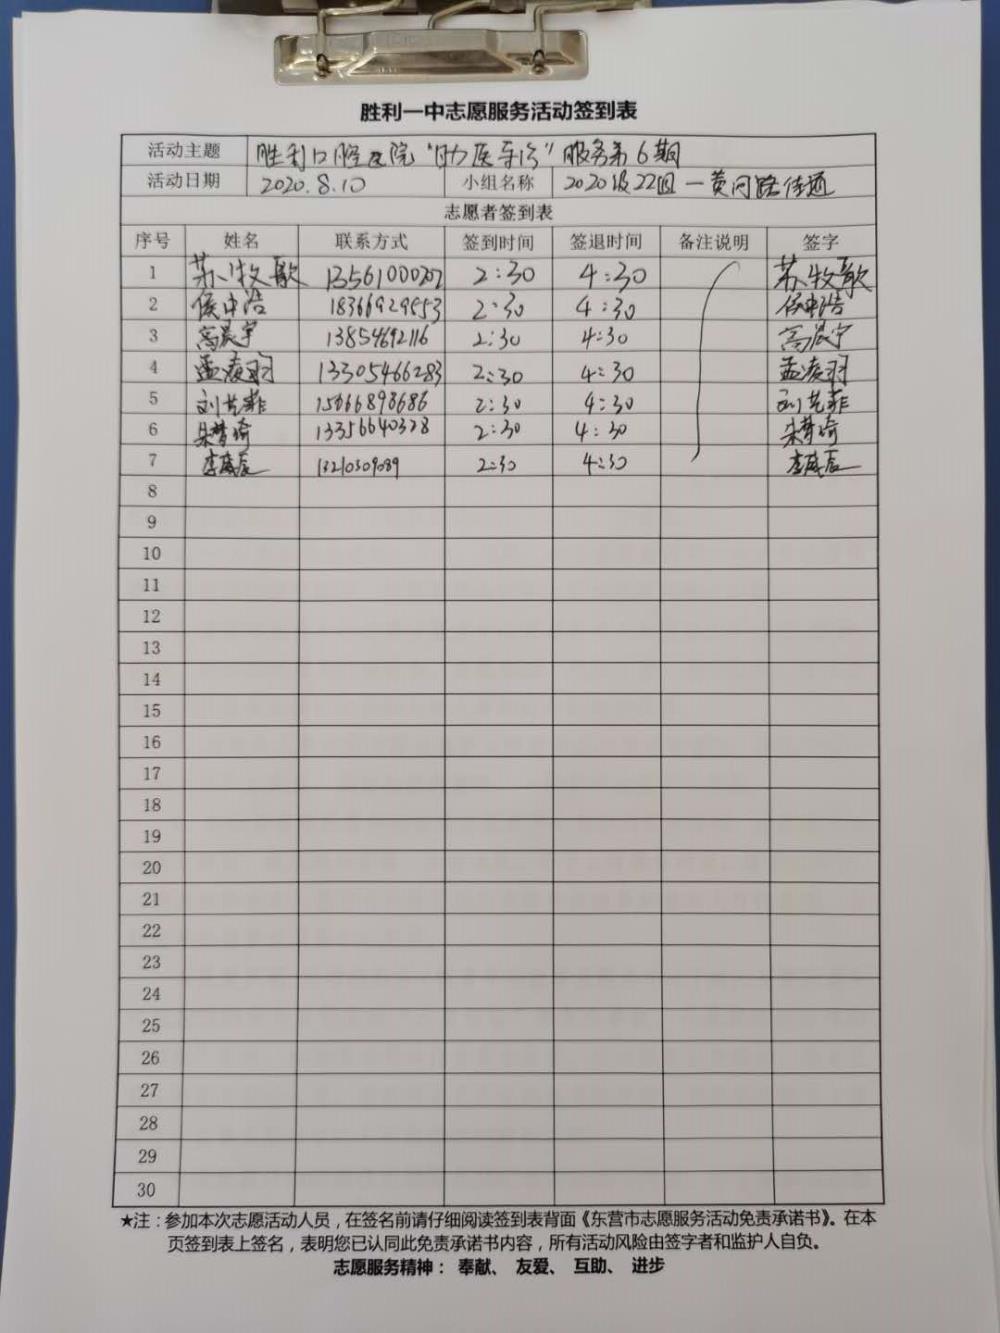 胜利一中志愿服务活动签到表
活动主题 胜利口腔医院“助医导诊”服务第6期
活动日期 2020.8.10 小组名称 2020级22组—黄河路街道
志愿者签到表
序号 姓名 联系方式 签到时间 签退时间 备注说明 签字
1 苏牧歌 13561000202 2:30 4:30 苏牧歌
2 侯中浩 18366929553 2:30 4:30 侯中浩
3 高晨宇 13854692116 2:30 4:30 高晨宇
4 孟凌羽 13305466283 2:30 4:30 孟凌羽
5 刘艺菲 15666898686 2:30 4:30 刘艺菲
6 朱梦琦 13356640328 2:30 4:30 朱梦琦
7 李晟辰 13210309089 2:30 4:30 李晟辰
8
9
10
11
12
13
14
15
16
17
18
19
20
21
22
23
24
25
26
27
28
29
30
★注：参加本次志愿活动人员，在签名前请仔细阅读签到表背面《东营市志愿服务活动免责承诺书》。在本
页签到表上签名，表明您已认同此免责承诺书内容，所有活动风险由签字者和监护人自负。
志愿服务精神： 奉献、 友爱、 互助、 进步